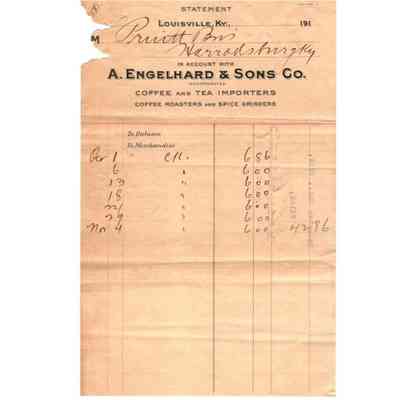 STATEMENT
LOUISVILLE, KY., 191
M Pruitt Bros
Harrodsburg Ky
IN ACCOUNT WITH
A. ENGELHARD & SONS CO.
INCORPORATED
COFFEE AND TEA IMPORTERS
COFFEE ROASTERS AND SPICE GRINDERS
To Balance
To Merchandise
1 6 86
6 " 6 00
13 " 6 00
18 " 6 00
" 6 00
29 " 6 00
Nov 4 " 6 00 42 86